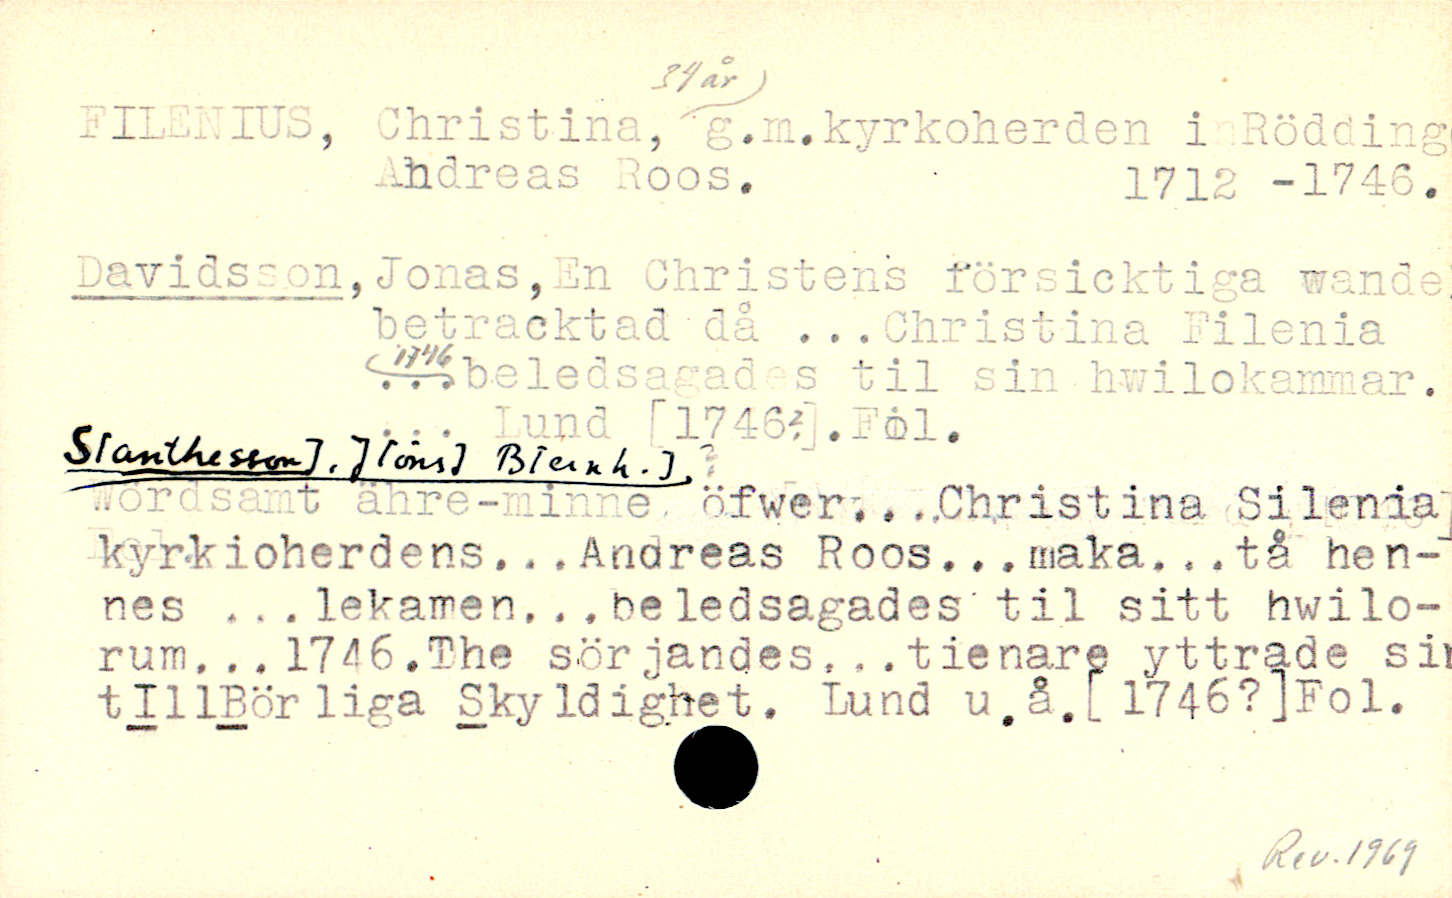 34 år
FILENIUS, Christina, g.m.kyrkoherden i Rödding
Andreas Roos. 1712 -1746.
Davidsson, Jonas, En Christens försicktiga wande
betracktad då ...Christina Filenia
1746
...beledsagades til sin hwilokammar.
... Lund [1746?].Fol.
S[anthesson], J[öns] B[ernh.], ?
Wördsamt ähre-minne öfwer...Christina Silenia
kyrkioherdens...Andreas Roos...maka...tå hen-
nes ...lekamen...beledsagades til sitt hwilo-
rum...1746.The sörjandes...tienare yttrade sin
tIllBörliga Skyldighet. Lund u.å.[1746?]Fol.
Rev. 1969